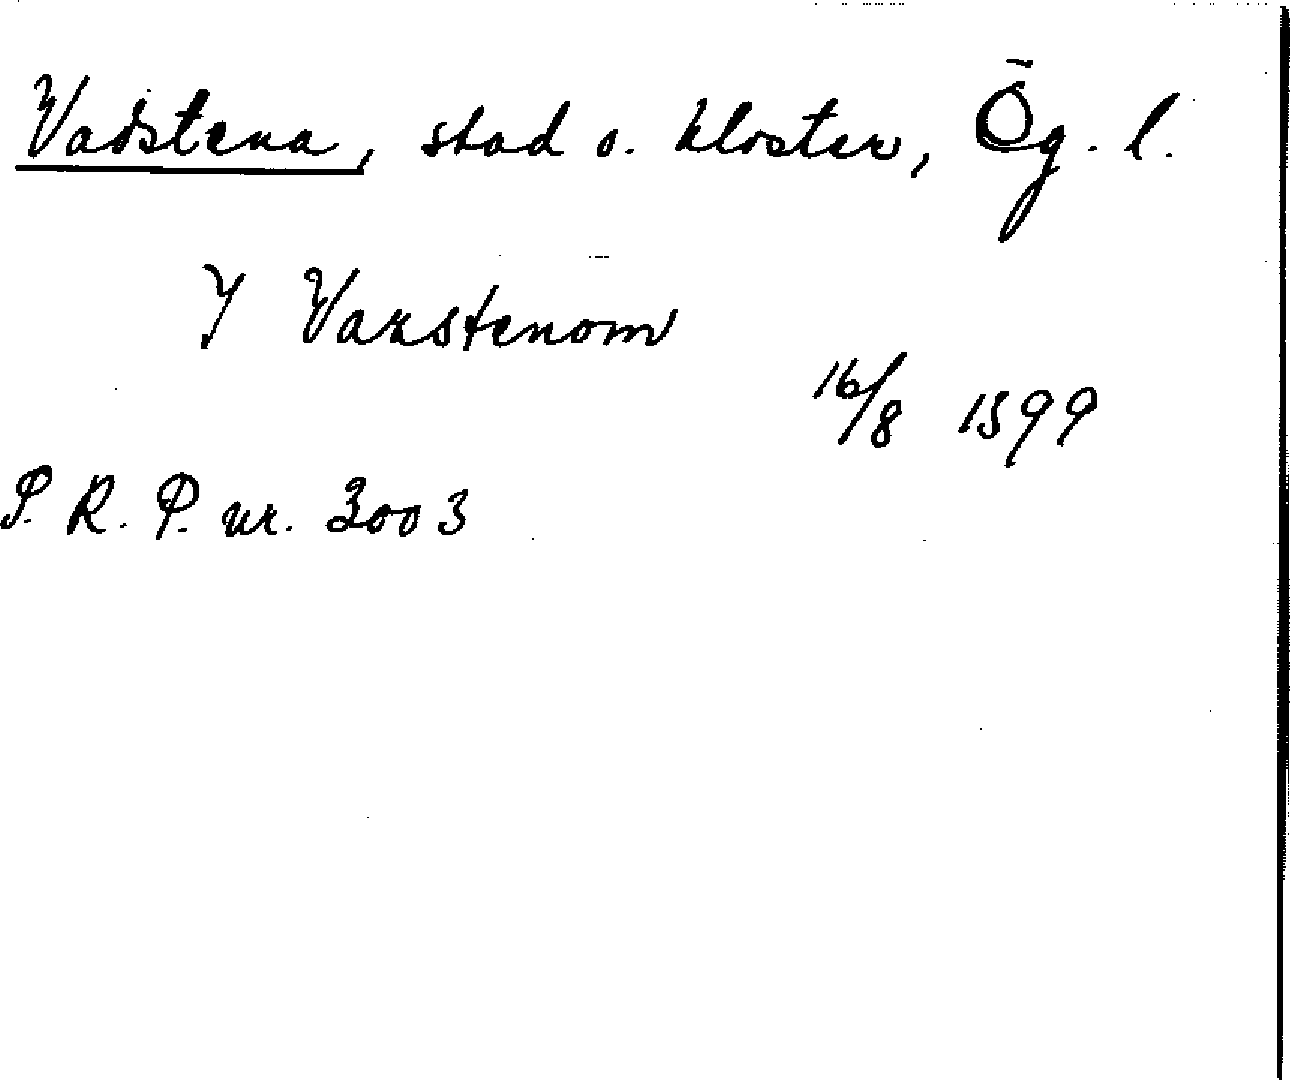 Vadstena, stad o. kloster, Ög. l.
Y Vazstenom
16/8 1399
S. R. P. nr. 3003